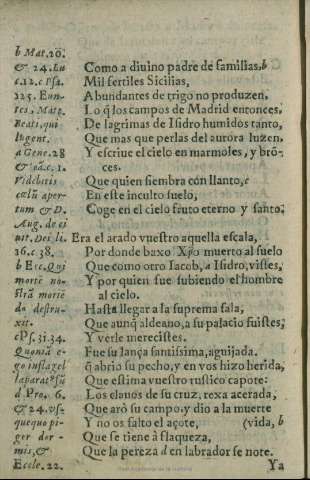 b Mat. 20.
& 24. Lu
c. 12. c Psa.
125. Eun-
tes. Matg.
Beati, qui
lugent.
a Gene. 28
c. 1.
Videbitis
cælũ aper-
tum & D.
Aug. de ci
uit. Dei li.
16. c. 38.
b Ecc. Qui
mortē no-
strã morie
do destru-
xit.
c Ps. 31. 34.
Quoniã e-
go inflagel
la parat9 sũ
d Pro. 6.
& 24. vs-
quequo pi-
ger dor-
mis, &
Eccle. 22.
Como a diuino padre de familias. b
Mil fertiles Sicilias,
Abundantes de trigo no produzen.
Lo q̃ los campos de Madrid entonces,
De lagrimas de Isidro humidos tanto,
Que mas que perlas del aurora luzen.
Y escriue el cielo en marmoles, y brõ-
ces.
Que quien siembra con llanto, c
En este inculto suelo,
Coge en el cielo fruto eterno y santo;
Era el arado vuestro aquella escala,
Por donde baxo Xpo muerto al suelo
Que como otro Iacob, a Isidro, vistes,
Y por quien fue subiendo el hombre
al cielo.
Hasta llegar a la suprema sala,
Que aunq̃ aldeano, a su palacio fuistes;
Y verle merecistes.
Fue su lança santissima, aguijada.
q̃ abrio su pecho, y en vos hizo herida,
Que estima vuestro rustico capote:
Los clauos de su cruz, rexa acerada,
Que arò su campo, y dio a la muerte
Y no os falto el açote, (vida, b
Que se tiene à flaqueza,
Que la pereza d en labrador se note.
Ya